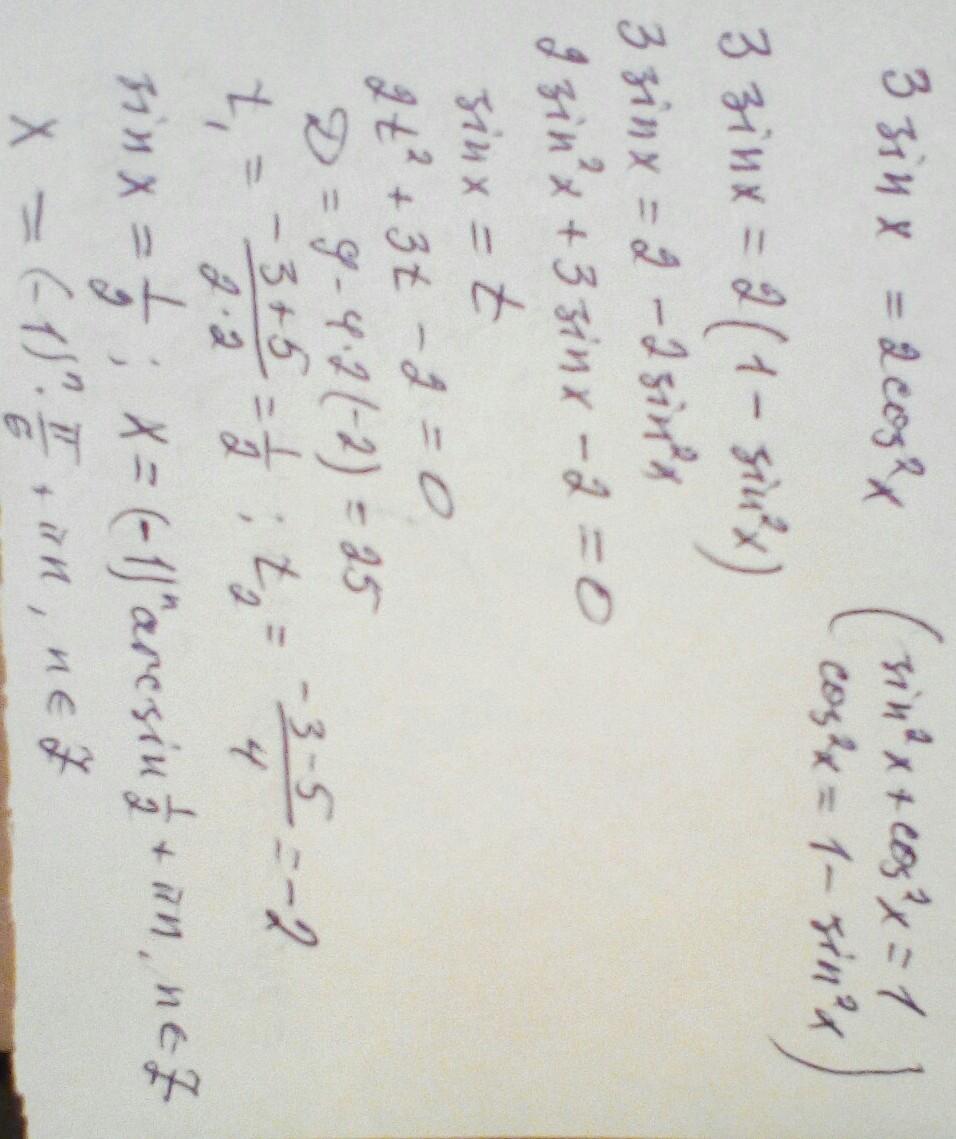 3 sin x = 2cos²x (sin²x + cos²x = 1
cos²x = 1 - sin²x)
3 sin x = 2(1 - sin²x)
3 sin x = 2 - 2sin²x
2 sin²x + 3 sin x - 2 = 0
sin x = t
2t² + 3t - 2 = 0
D = 9 - 4·2(-2) = 25
t₁ = (-3+5)/(2·2) = 1/2 ; t₂ = (-3-5)/4 = -2
sin x = 1/2 ; x = (-1)ⁿ arcsin 1/2 + πn, n ∈ Z
x = (-1)ⁿ · π/6 + πn, n ∈ Z